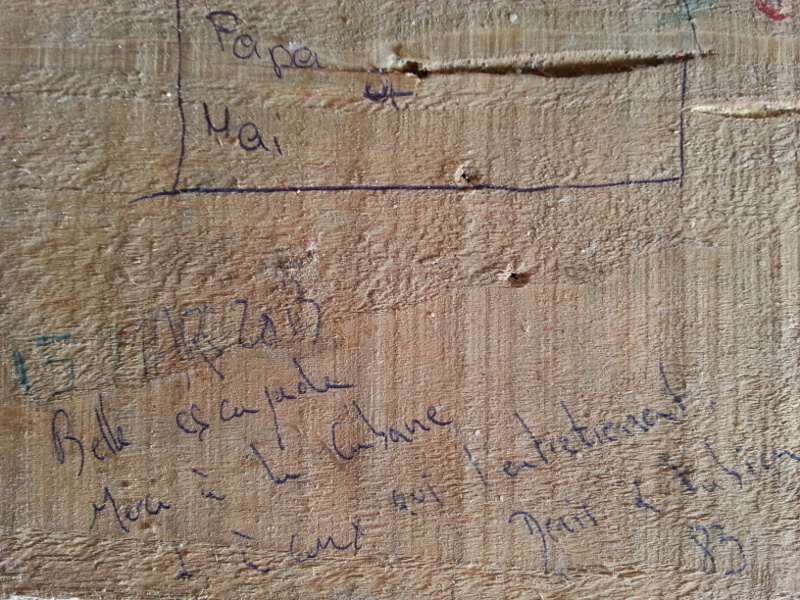 Papa
et
Mai
15 MAR 2013
Belle escapade
Merci à la Cabane
& à ceux qui l'entretiennent.
Denis & Fabien
83